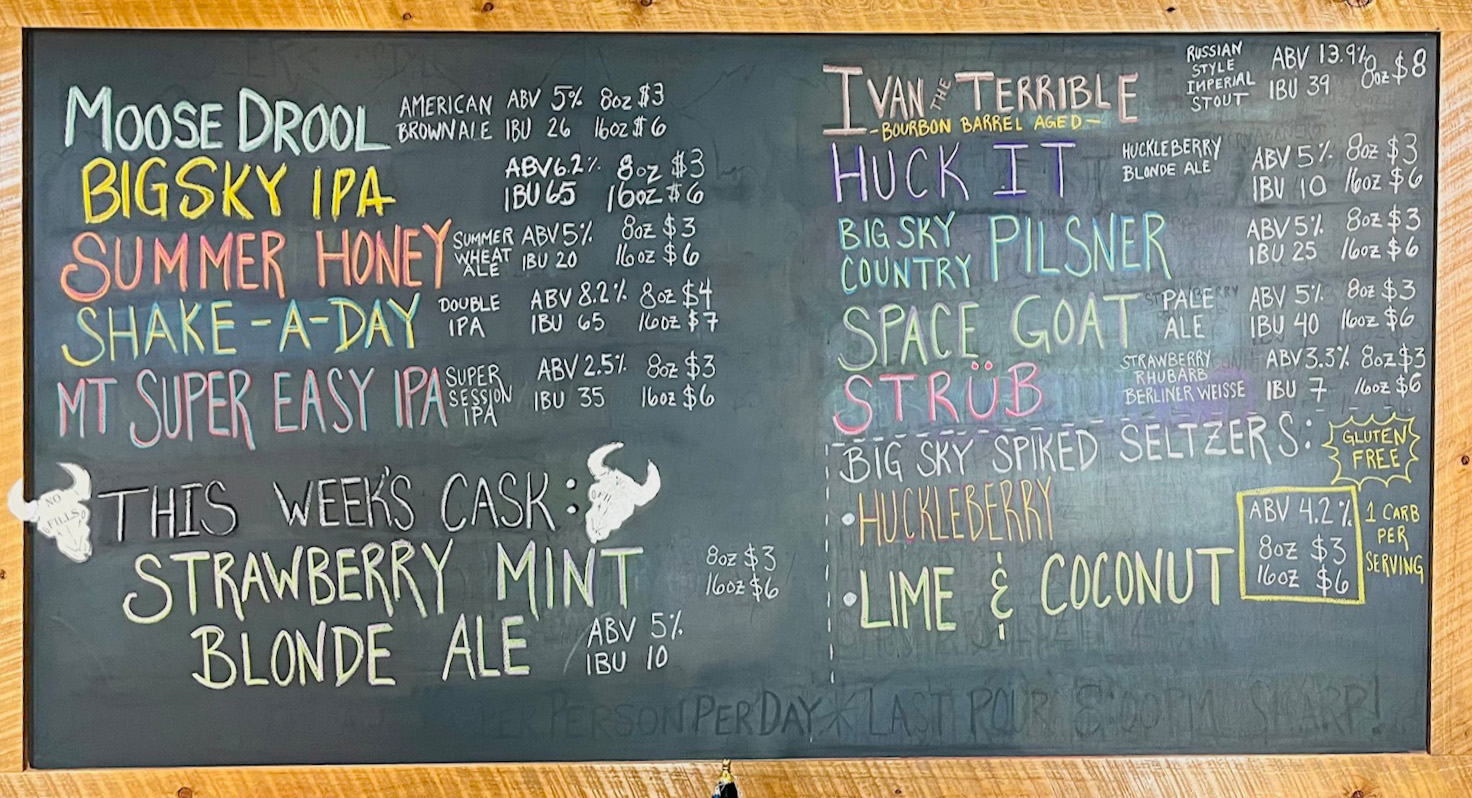 MOOSE DROOL AMERICAN BROWN ALE ABV 5% 8oz $3
IBU 26 16oz $6
BIG SKY IPA ABV 6.2% 8oz $3
IBU 65 16oz $6
SUMMER HONEY SUMMER WHEAT ALE ABV 5% 8oz $3
IBU 20 16oz $6
SHAKE-A-DAY DOUBLE IPA ABV 8.2% 8oz $4
IBU 65 16oz $7
MT SUPER EASY IPA SUPER SESSION IPA ABV 2.5% 8oz $3
IBU 35 16oz $6
NO FILLS
THIS WEEK'S CASK:
STRAWBERRY MINT 8oz $3
16oz $6
BLONDE ALE ABV 5%
IBU 10
IVAN THE TERRIBLE RUSSIAN STYLE IMPERIAL STOUT ABV 13.9% 8oz $8
IBU 39
-BOURBON BARREL AGED-
HUCK IT HUCKLEBERRY BLONDE ALE ABV 5% 8oz $3
IBU 10 16oz $6
BIG SKY COUNTRY PILSNER ABV 5% 8oz $3
IBU 25 16oz $6
SPACE GOAT PALE ALE ABV 5% 8oz $3
IBU 40 16oz $6
STRÜB STRAWBERRY RHUBARB BERLINER WEISSE ABV 3.3% 8oz $3
IBU 7 16oz $6
BIG SKY SPIKED SELTZERS:
GLUTEN FREE
• HUCKLEBERRY
• LIME & COCONUT
ABV 4.2%
8oz $3
16oz $6
1 CARB
PER
SERVING
PER PERSON PER DAY * LAST POUR 8:00PM SHARP!